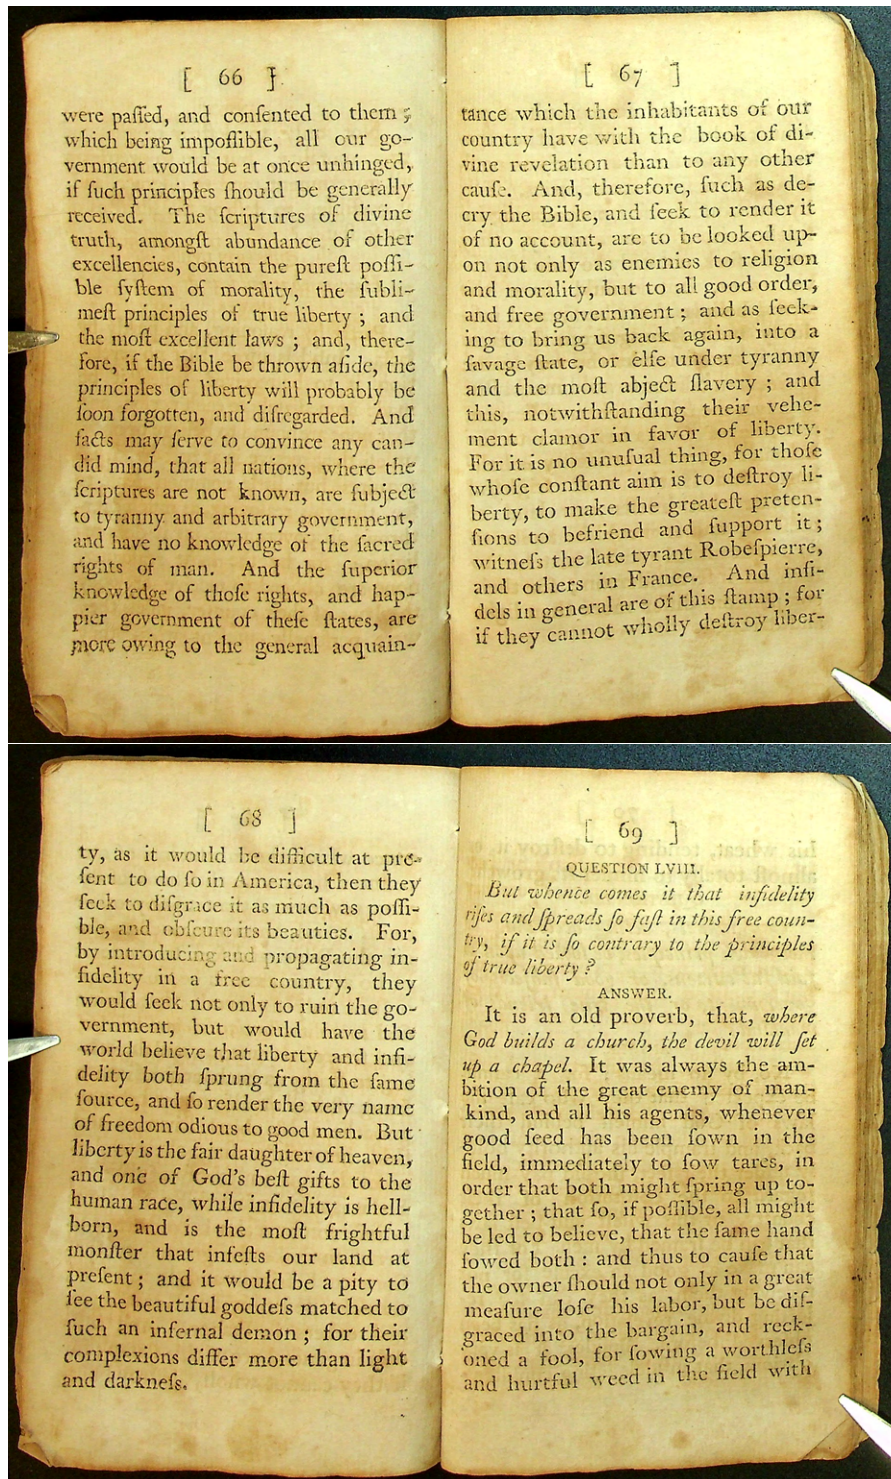 [ 66 ]
were paſſed, and conſented to them ;
which being impoſſible, all our go-
vernment would be at once unhinged,
if ſuch principles ſhould be generally
received. The ſcriptures of divine
truth, amongſt abundance of other
excellencies, contain the pureſt poſſi-
ble ſyſtem of morality, the ſubli-
meſt principles of true liberty ; and
the moſt excellent laws ; and, there-
fore, if the Bible be thrown aſide, the
principles of liberty will probably be
ſoon forgotten, and diſregarded. And
facts may ſerve to convince any can-
did mind, that all nations, where the
ſcriptures are not known, are ſubject
to tyranny and arbitrary government,
and have no knowledge of the ſacred
rights of man. And the ſuperior
knowledge of thoſe rights, and hap-
pier government of theſe ſtates, are
more owing to the general acquain-
[ 67 ]
tance which the inhabitants of our
country have with the book of di-
vine revelation than to any other
cauſe. And, therefore, ſuch as de-
cry the Bible, and ſeek to render it
of no account, are to be looked up-
on not only as enemies to religion
and morality, but to all good order,
and free government ; and as ſeek-
ing to bring us back again, into a
ſavage ſtate, or elſe under tyranny
and the moſt abject ſlavery ; and
this, notwithſtanding their vehe-
ment clamor in favor of liberty.
For it is no unuſual thing, for thoſe
whoſe conſtant aim is to deſtroy li-
berty, to make the greateſt preten-
ſions to befriend and ſupport it ;
witneſs the late tyrant Robeſpierre,
and others in France. And infi-
dels in general are of this ſtamp ; for
if they cannot wholly deſtroy liber-
[ 68 ]
ty, as it would be difficult at pre-
ſent to do ſo in America, then they
ſeek to diſgrace it as much as poſſi-
ble, and obſcure its beauties. For,
by introducing and propagating in-
fidelity in a free country, they
would ſeek not only to ruin the go-
vernment, but would have the
world believe that liberty and infi-
delity both ſprung from the ſame
ſource, and ſo render the very name
of freedom odious to good men. But
liberty is the fair daughter of heaven,
and one of God's beſt gifts to the
human race, while infidelity is hell-
born, and is the moſt frightful
monſter that infeſts our land at
preſent ; and it would be a pity to
ſee the beautiful goddeſs matched to
ſuch an infernal demon ; for their
complexions differ more than light
and darkneſs.
[ 69 ]
QUESTION LVIII.
But whence comes it that infidelity
riſes and ſpreads ſo faſt in this free coun-
try, if it is ſo contrary to the principles
of true liberty ?
ANSWER.
It is an old proverb, that, where
God builds a church, the devil will ſet
up a chapel. It was always the am-
bition of the great enemy of man-
kind, and all his agents, whenever
good ſeed has been ſown in the
field, immediately to ſow tares, in
order that both might ſpring up to-
gether ; that ſo, if poſſible, all might
be led to believe, that the ſame hand
ſowed both : and thus to cauſe that
the owner ſhould not only in a great
meaſure loſe his labor, but be diſ-
graced into the bargain, and reck-
oned a fool, for ſowing a worthleſs
and hurtful weed in the field with